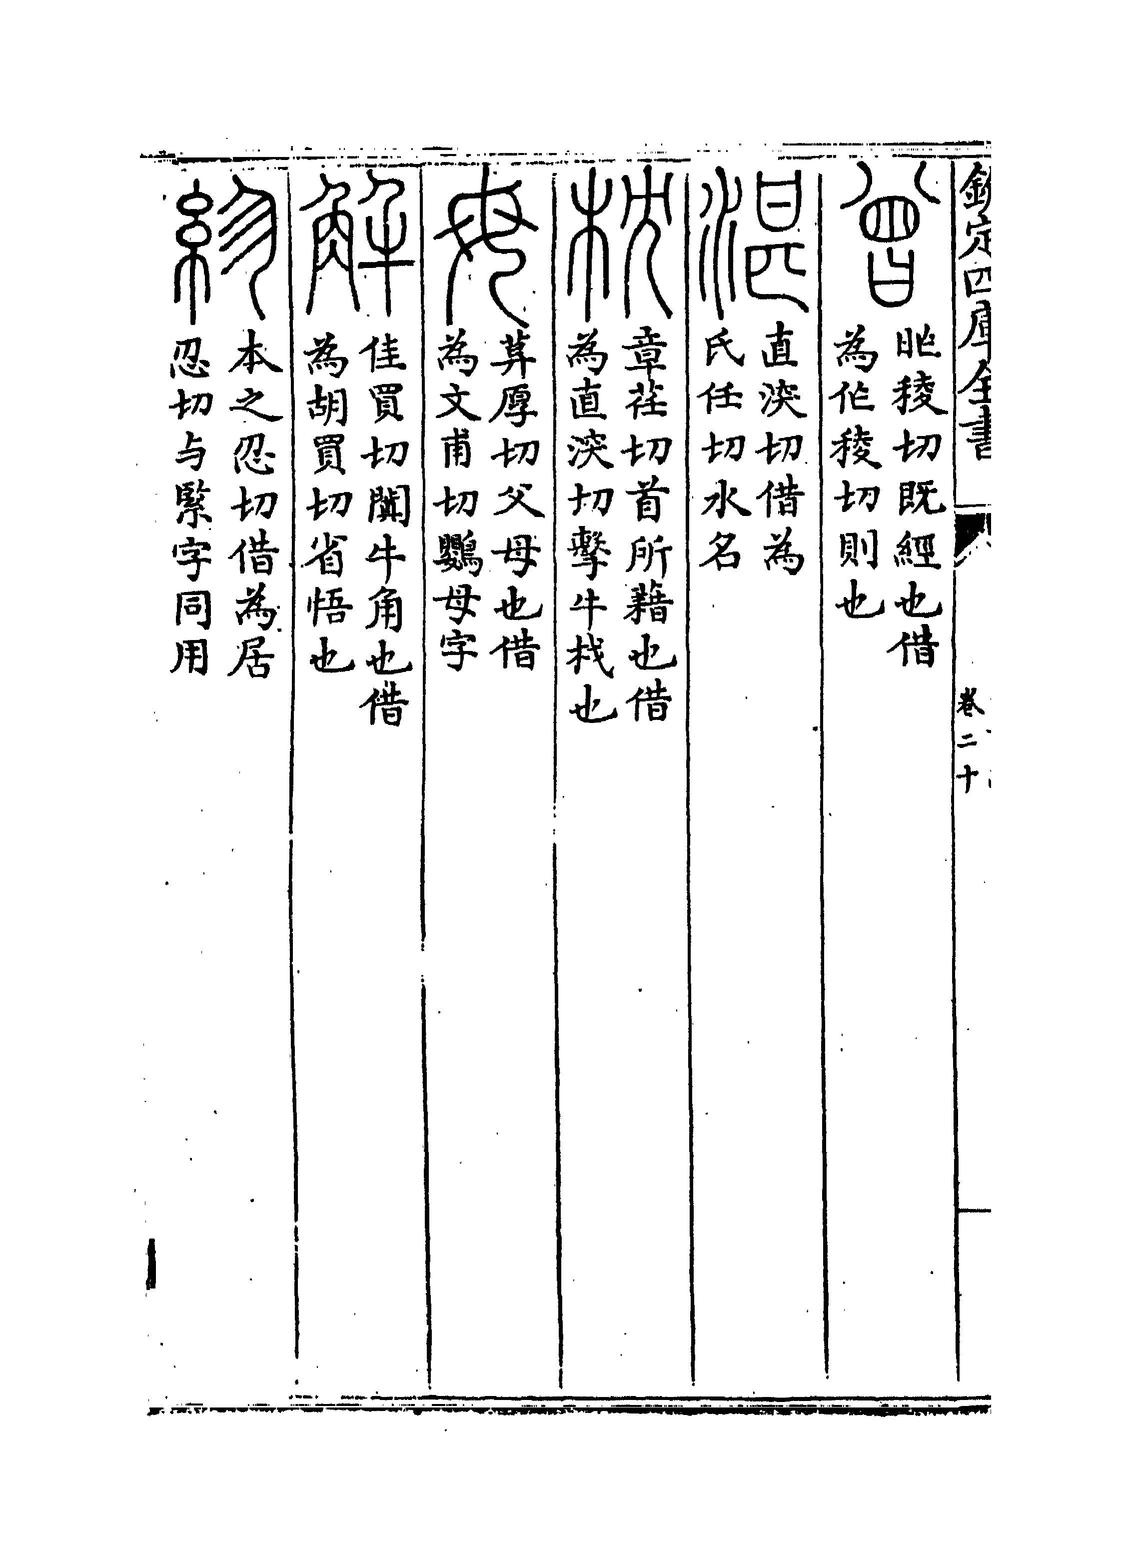 欽定四庫全書
卷二十
曾
昨稜切既經也借
為作稜切則也
湛
直深切借為
氏任切水名
枕
章荏切首所藉也借
為直深切擊牛杙也
母
莽厚切父母也借
為文甫切鸚母字
解
佳買切開牛角也借
為胡買切省悟也
紾
本之忍切借為居
忍切与緊字同用